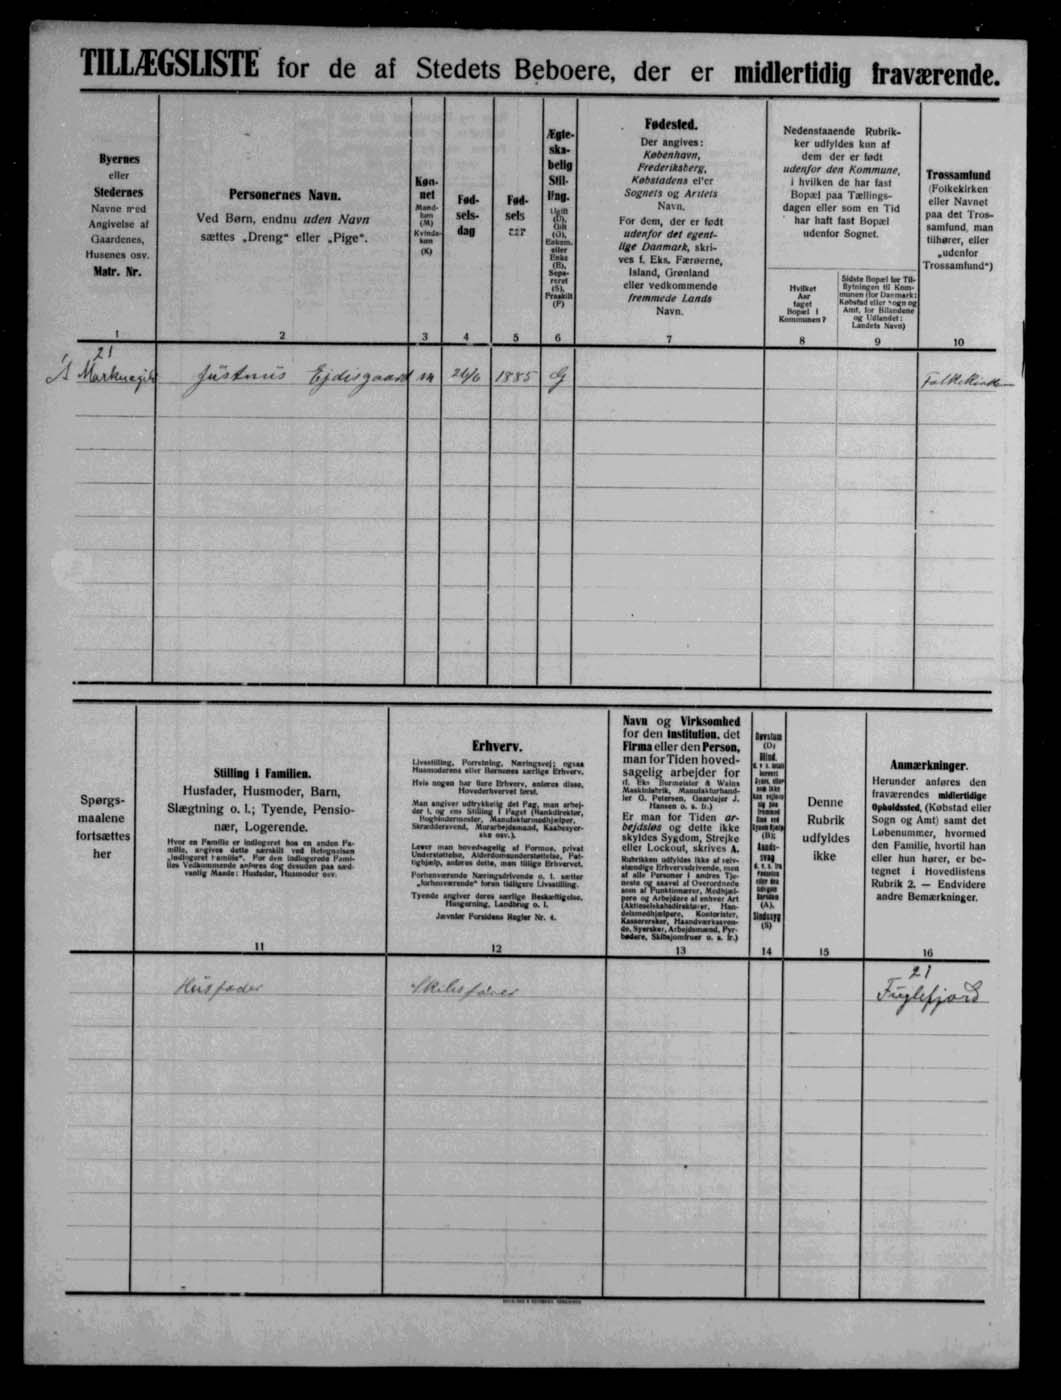 TILLÆGSLISTE for de af Stedets Beboere, der er midlertidig fraværende.
Byernes
eller
Stedernes
Navne med
Angivelse af
Gaardenes,
Husenes osv.
Matr. Nr.
1
Personernes Navn.
Ved Børn, endnu uden Navn
sættes „Dreng“ eller „Pige“.
2
Køn-
net
Mand-
køn
(M)
Kvinde-
køn
(K)
3
Fød-
sels-
dag
4
Fød-
sels
aar
5
Ægte-
ska-
belig
Stil-
ling.
Ugift
(U),
Gift
(G),
Enkem.
eller
Enke
(E),
Sepa-
reret
(S),
Fraskilt
(F)
6
Fødested.
Der angives:
København,
Frederiksberg,
Købstadens eller
Sognets og Amtets
Navn.
For dem, der er født
udenfor det egent-
lige Danmark, skri-
ves f. Eks. Færøerne,
Island, Grønland
eller vedkommende
fremmede Lands
Navn.
7
Nedenstaaende Rubrik-
ker udfyldes kun af
dem der er født
udenfor den Kommune,
i hvilken de har fast
Bopæl paa Tællings-
dagen eller som en Tid
har haft fast Bopæl
udenfor Sognet.
Hvilket
Aar
taget
Bopæl i
Kommunen?
8
Sidste Bopæl før Til-
flytningen til Kom-
munen (for Danmark:
Købstad eller Sogn og
Amt, for Bilandene
og Udlandet:
Landets Navn)
9
Trossamfund
(Folkekirken
eller Navnet
paa det Tros-
samfund, man
tilhører, eller
„udenfor
Trossamfund“)
10
21
Justinus Ejdisgaard m 26/6 1885 G Folkekirken
Spørgs-
maalene
fortsættes
her
Stilling i Familien.
Husfader, Husmoder, Barn,
Slægtning o. l.; Tyende, Pensio-
nær, Logerende.
Hvor en Familie er indlogeret hos en anden Fa-
milie, angives dette særskilt ved Betegnelsen
„indlogeret Familie“. For den indlogerede Fami-
lies Vedkommende anføres dog desuden paa sæd-
vanlig Maade: Husfader, Husmoder osv.
11
Erhverv.
Livsstilling, Forretning, Næringsvej; ogsaa
Husmoderens eller Børnenes særlige Erhverv.
Hvis nogen har flere Erhverv, anføres disse,
Hovederhvervet først.
Man angiver udtrykkelig det Fag, man arbej-
der i, og ens Stilling i Faget (Handkdirektør,
Bogbindermester, Manufakturmedhjælper,
Skræddersvend, Murarbejdsmand, Kaabesyer-
ske osv.).
Lever man hovedsagelig af Formue, privat
Understøttelse, Alderdomsunderstøttelse, Fat-
tighjælp, anføres dette, man tillige Erhvervet.
Forhenværende Næringsdrivende o. l. sætter
„forhenværende“ foran tidligere Livsstilling.
Tyende angiver deres særlige Beskæftigelse,
Husgerning, Landbrug o. l.
Jævnfør Forsidens Regler Nr. 4.
12
Navn og Virksomhed
for den Institution, det
Firma eller den Person,
man for Tiden hoved-
sagelig arbejder for
(f. Eks. Burmeister & Wains
Maskinfabrik, Manufakturhand-
ler G. Petersen, Gaardejer J.
Hansen o. s. fr.)
Er man for Tiden ar-
bejdsløs og dette ikke
skyldes Sygdom, Strejke
eller Lockout, skrives A.
Rubrikken udfyldes ikke af selv-
stændige Erhvervsdrivende, men
af alle Personer i andres Tje-
neste og saavel af Overordnede
som af Funktionærer, Medhjæl-
pere og Arbejdere af enhver Art
(Aktieselskabsdirektører, Han-
delsmedhjælpere, Kontorister,
Kasserersker, Haandværkssven-
de, Syersker, Arbejdsmænd, Fyr-
bødere, Skibsjomfruer o. s. fr.)
13
Døvstum
(D)
Blind,
(B);
Aands-
svag
(A),
Sindssyg
(S)
14
Denne
Rubrik
udfyldes
ikke
15
Anmærkninger.
Herunder anføres den
fraværendes midlertidige
Opholdssted, (Købstad eller
Sogn og Amt) samt det
Løbenummer, hvormed
den Familie, hvortil han
eller hun hører, er be-
tegnet i Hovedlistens
Rubrik 2. — Endvidere
andre Bemærkninger.
16
21
Husfader Skibsfører Fuglefjord